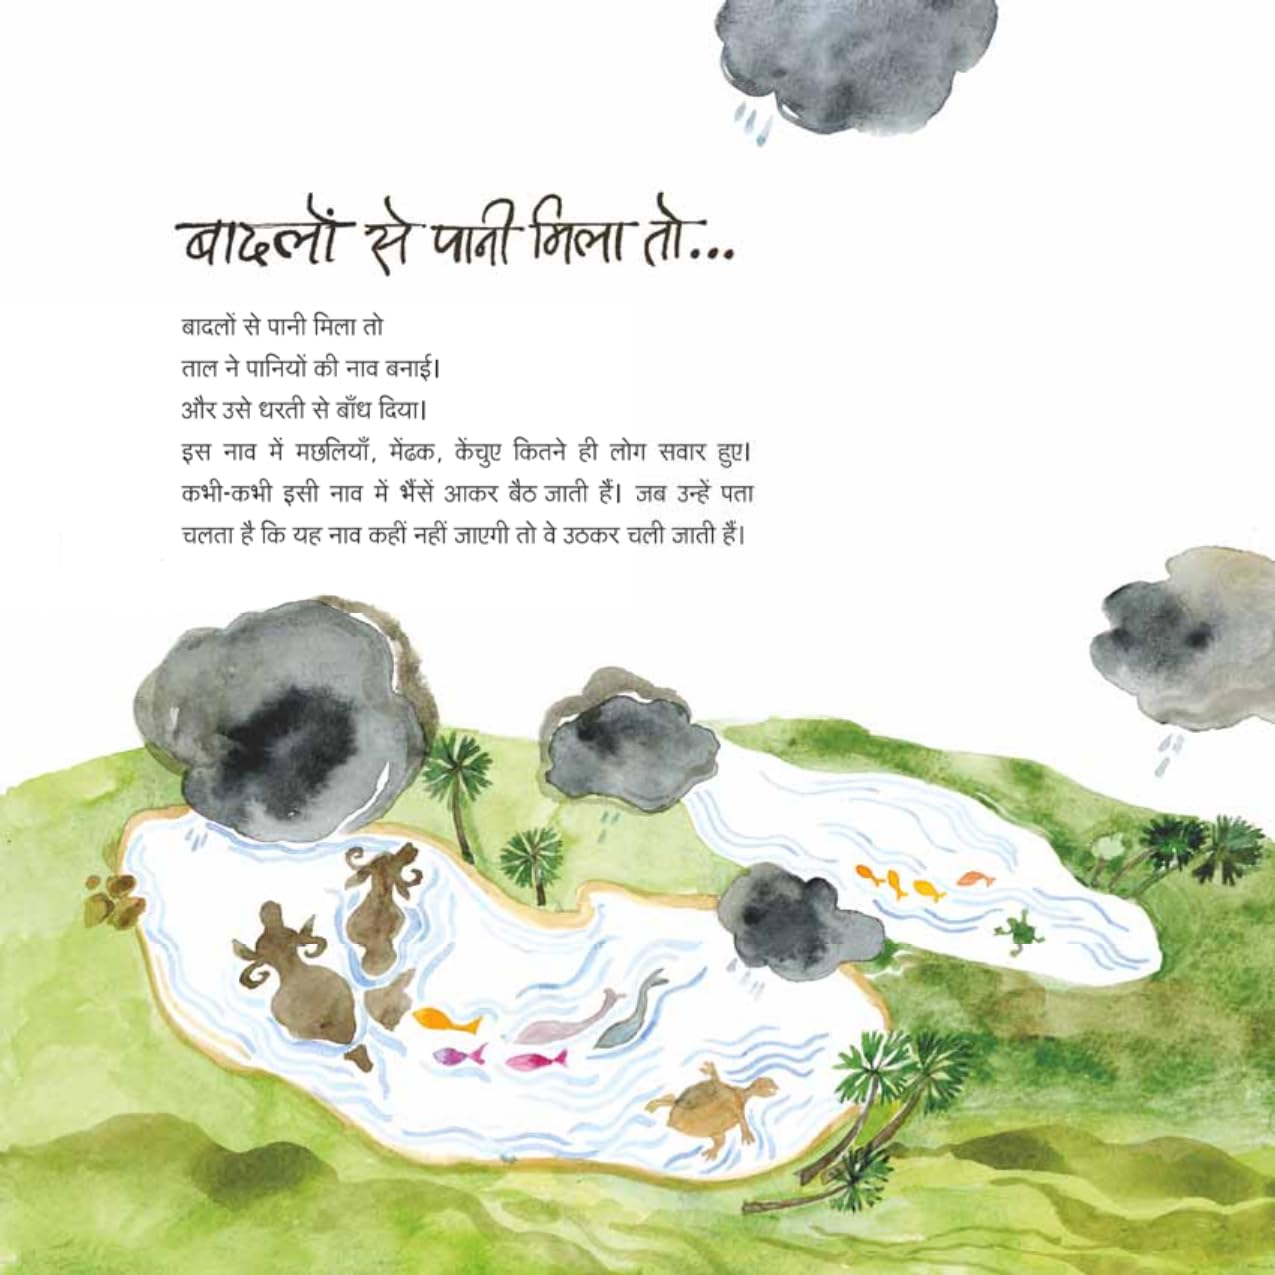 बादलों से पानी मिला तो...
बादलों से पानी मिला तो
ताल ने पानियों की नाव बनाई।
और उसे धरती से बाँध दिया।
इस नाव में मछलियाँ, मेंढक, केंचुए कितने ही लोग सवार हुए।
कभी-कभी इसी नाव में भैंसें आकर बैठ जाती हैं। जब उन्हें पता
चलता है कि यह नाव कहीं नहीं जाएगी तो वे उठकर चली जाती हैं।